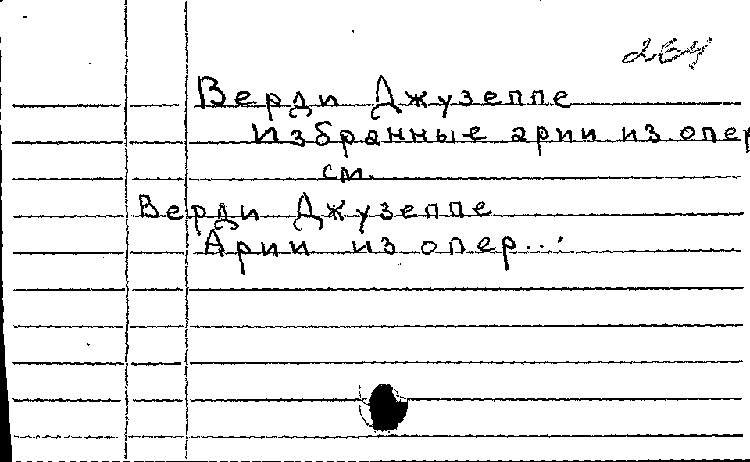 264
Верди Джузеппе
Избранные арии из опер
см.
Верди Джузеппе
Арии из опер...